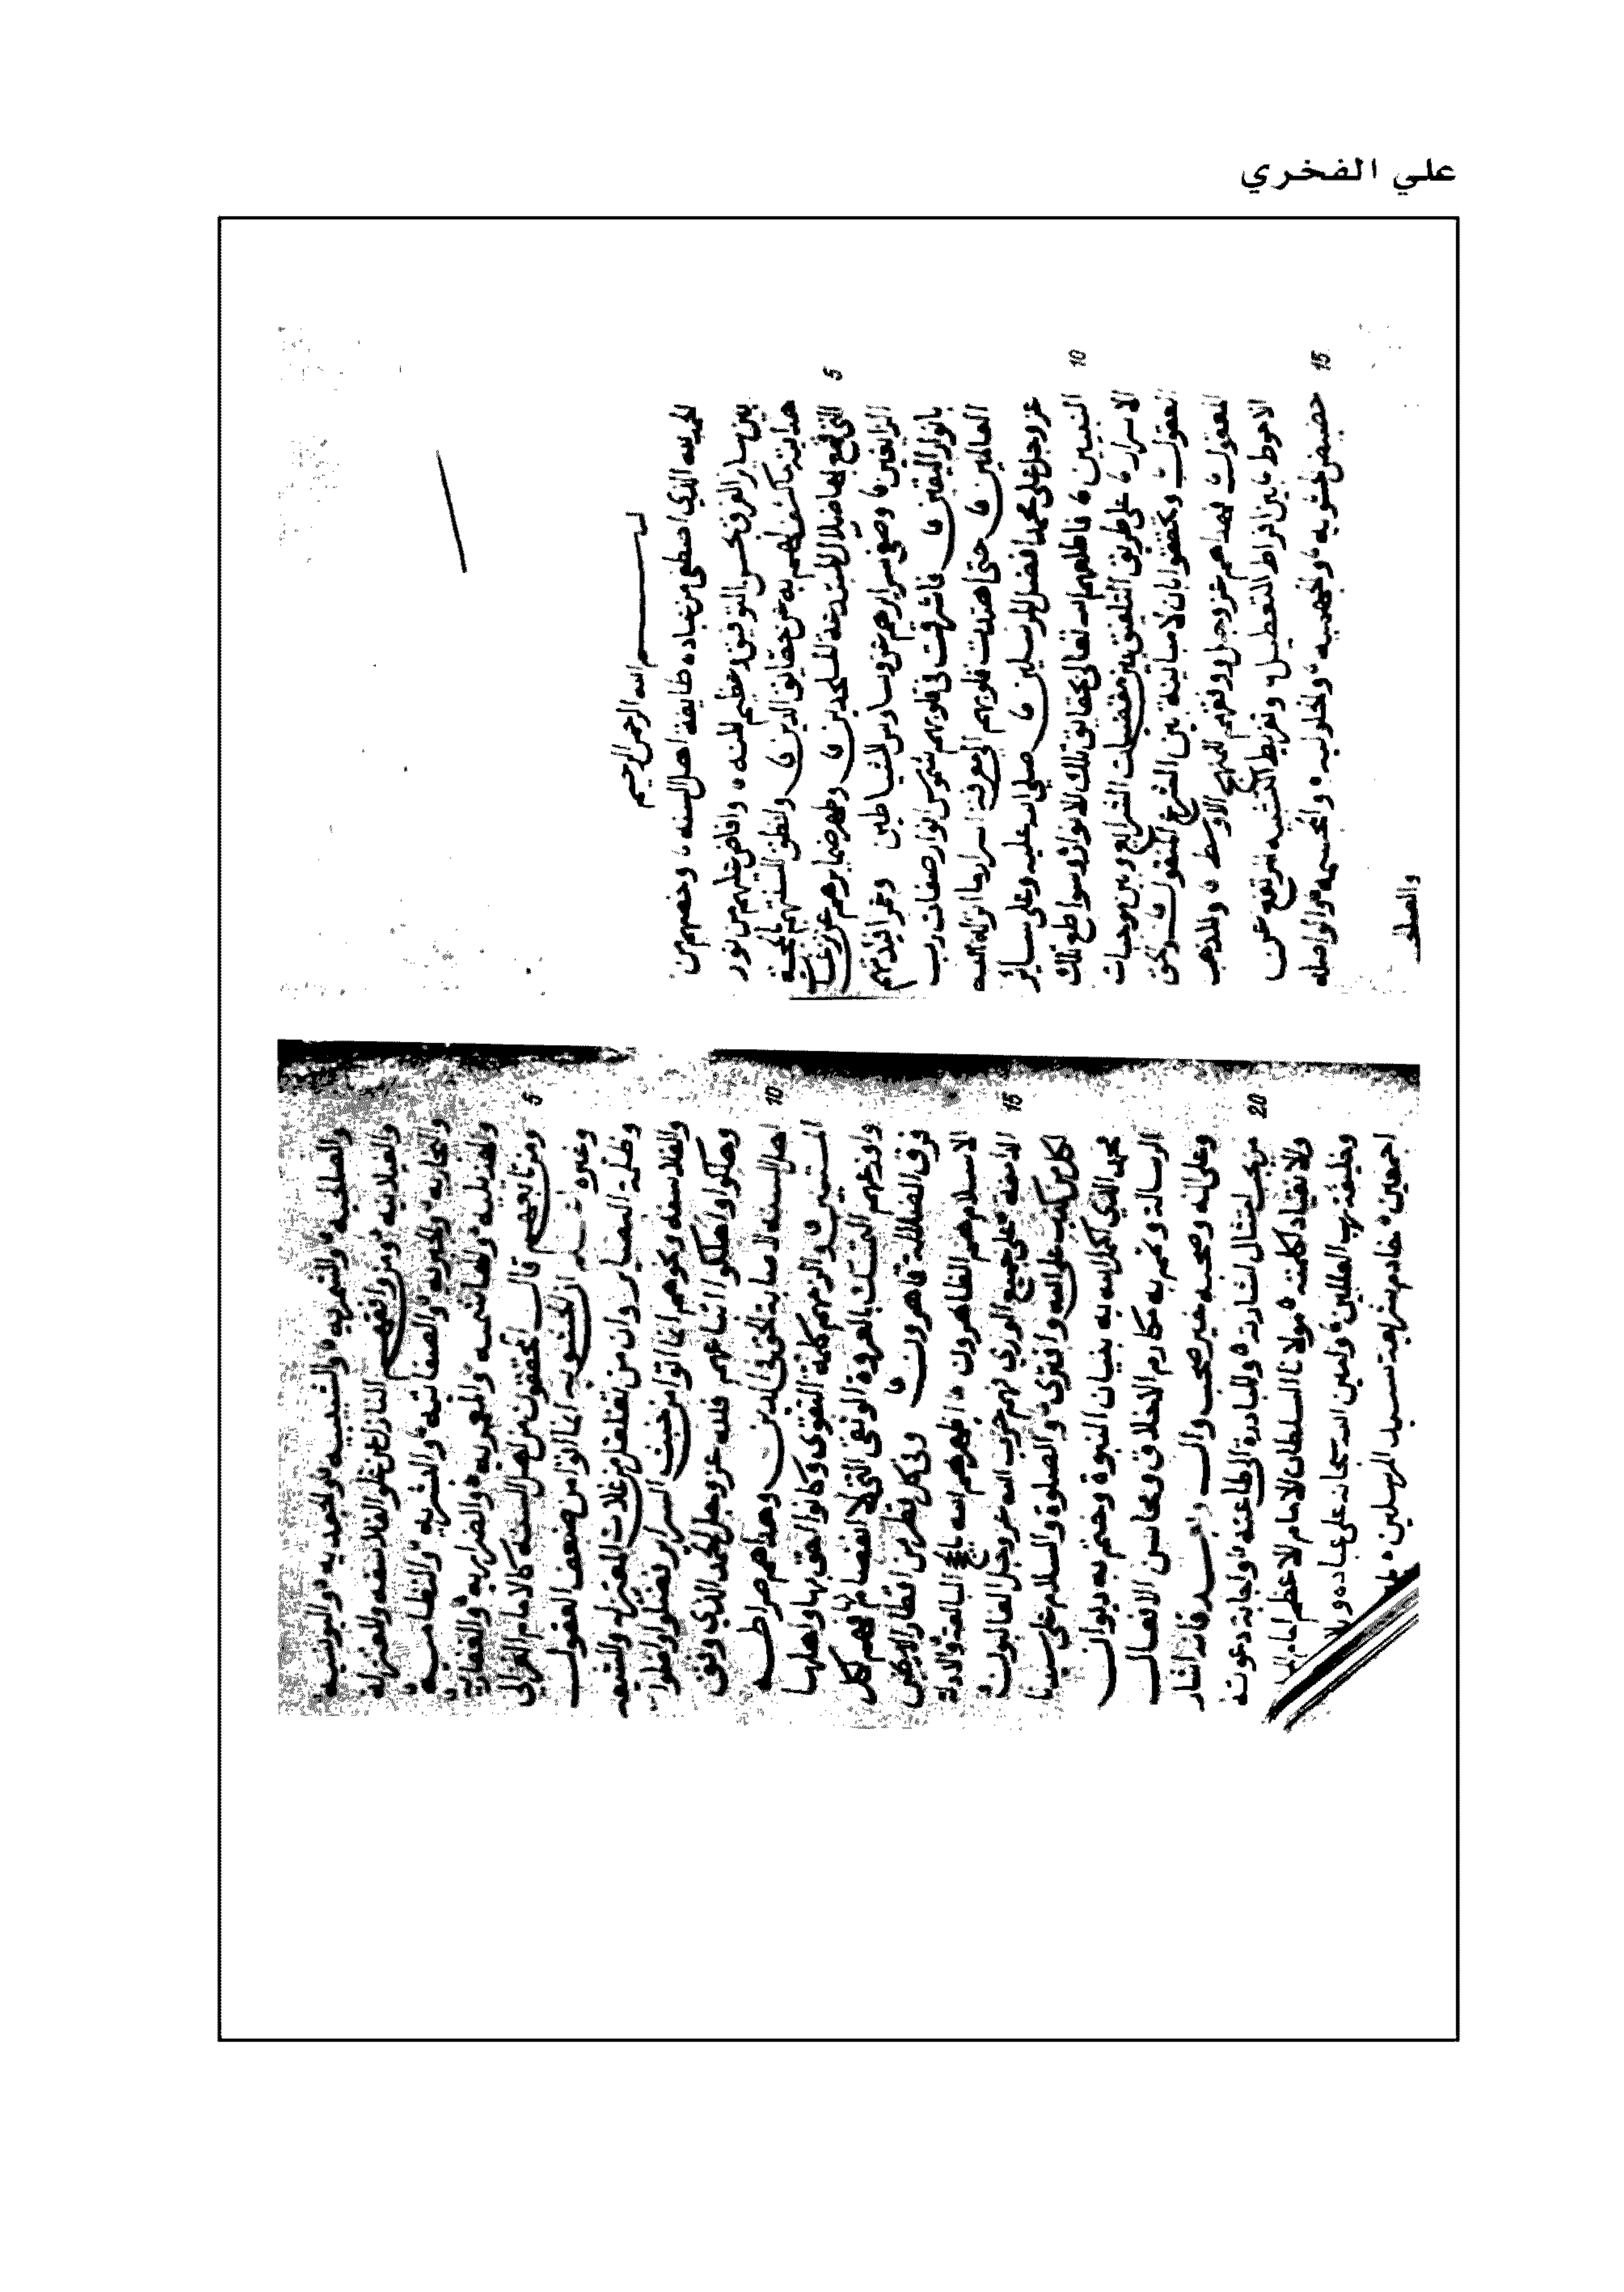 علي الفخري
بسم الله الرحمن الرحيم
الحمد لله الذي اصطفى من عباده طايفة اهل السنه، وخصهم من
بين ساير الفرق بحسن التوفيق وعظيم المنه، وافاض عليهم من نور
هدايته ما كشف لهم به عن حقايق الدين، وانطق السنتهم بالحجة
التي قمع بها ضلال المبتدعة الملحدين، وطهر ضمايرهم عن نزغات
الزايغين، وصفى سرايرهم عن وساوس الشياطين وعمر افئدتهم
بانوار اليقين، فاشرقت في قلوبهم شموس انوار صفات رب
العالمين، حتى اهتدت قلوبهم الى معرفة اسرار ما انزله الله
عز وجل على محمد افضل المرسلين، صلى الله عليه وعلى ساير
النبيين، فاطلعهم الله تعالى بحقايق تلك الانوار وسواطع تلك
الاسرار، على طريق التلفيق بين مقتضيات الشرايع وبين موجبات
العقول، وتحققوا بان لا مباينة بين الشرع المنقول، والحق
المعقول، فهداهم عز وجل ووفقهم للمنهج الاوسط، والمذهب
الاحوط، بين افراط التعطيل، وتفريط التشبيه المرتفع عن
حضيض الحشويه، والجهميه، والحلوليه، والمجسمه والواصليه
والصلحـ
والصلحيه والشمريه والشبيبيه والجحديه واليونسيه
والغيلانيه ومن وافقهم النازل عن غلو الفلاسفه والمعتزله
والنجاريه والجبريه والصفاتيه والبشريه والنظاميه
والهذيليه والهاشميه والمعمريه والضراريه والغفاريه
ومن تابعهم قال المحققون من اهل السنه كالامام الغزالي
وغيره ان الحشويه انما اتوا من ضعف العقول
وظلمة البصاير وان من تغلغل من غلات المعتزله والشيعه
والفلاسفه ونحوهم انما اتوا من خبث السراير فضلوا واضلوا
وهلكوا واهلكوا اتباعهم فلله عز وجل الحمد الذي وفق
اهل السنه لاصابة الحق في الدين وهداهم صراطه
المستبين، والزمهم كلمة التقوى وكانوا احق بها واهلها
وافرغهم التمسك بالعروة الوثقى التي لا انفصام لها فهم لكل
فرق الضلالة قاهرون، وفي كل قطر من اقطار الارض
الاسلام هم الظاهرون، اظهرهم الله بالحجج البالغة والدلالة
الدامغة على جميع الورى فهم حزب الله عز وجل الغالبون
لكل من كذب على الله وافترى والصلوة والسلام على سيدنا
محمد الذي اكمل الله به بنيان النبوة وختم به ديوان
الرسالة وتمم به مكارم الاخلاق ومحاسن الافعال
وعلى اله وصحبه خير صحب وال وبعد فانه اشار
من يجب امتثال اشارته والمبادرة الى طاعته واجابة دعوته
والانقياد لكلمته مولانا السلطان الامام الاعظم امام
وخليفة رب العالمين وامين الله سبحانه على عباده وبلا
اجمعين خادم شريعة سيد المرسلين
5
10
15
5
10
15
20